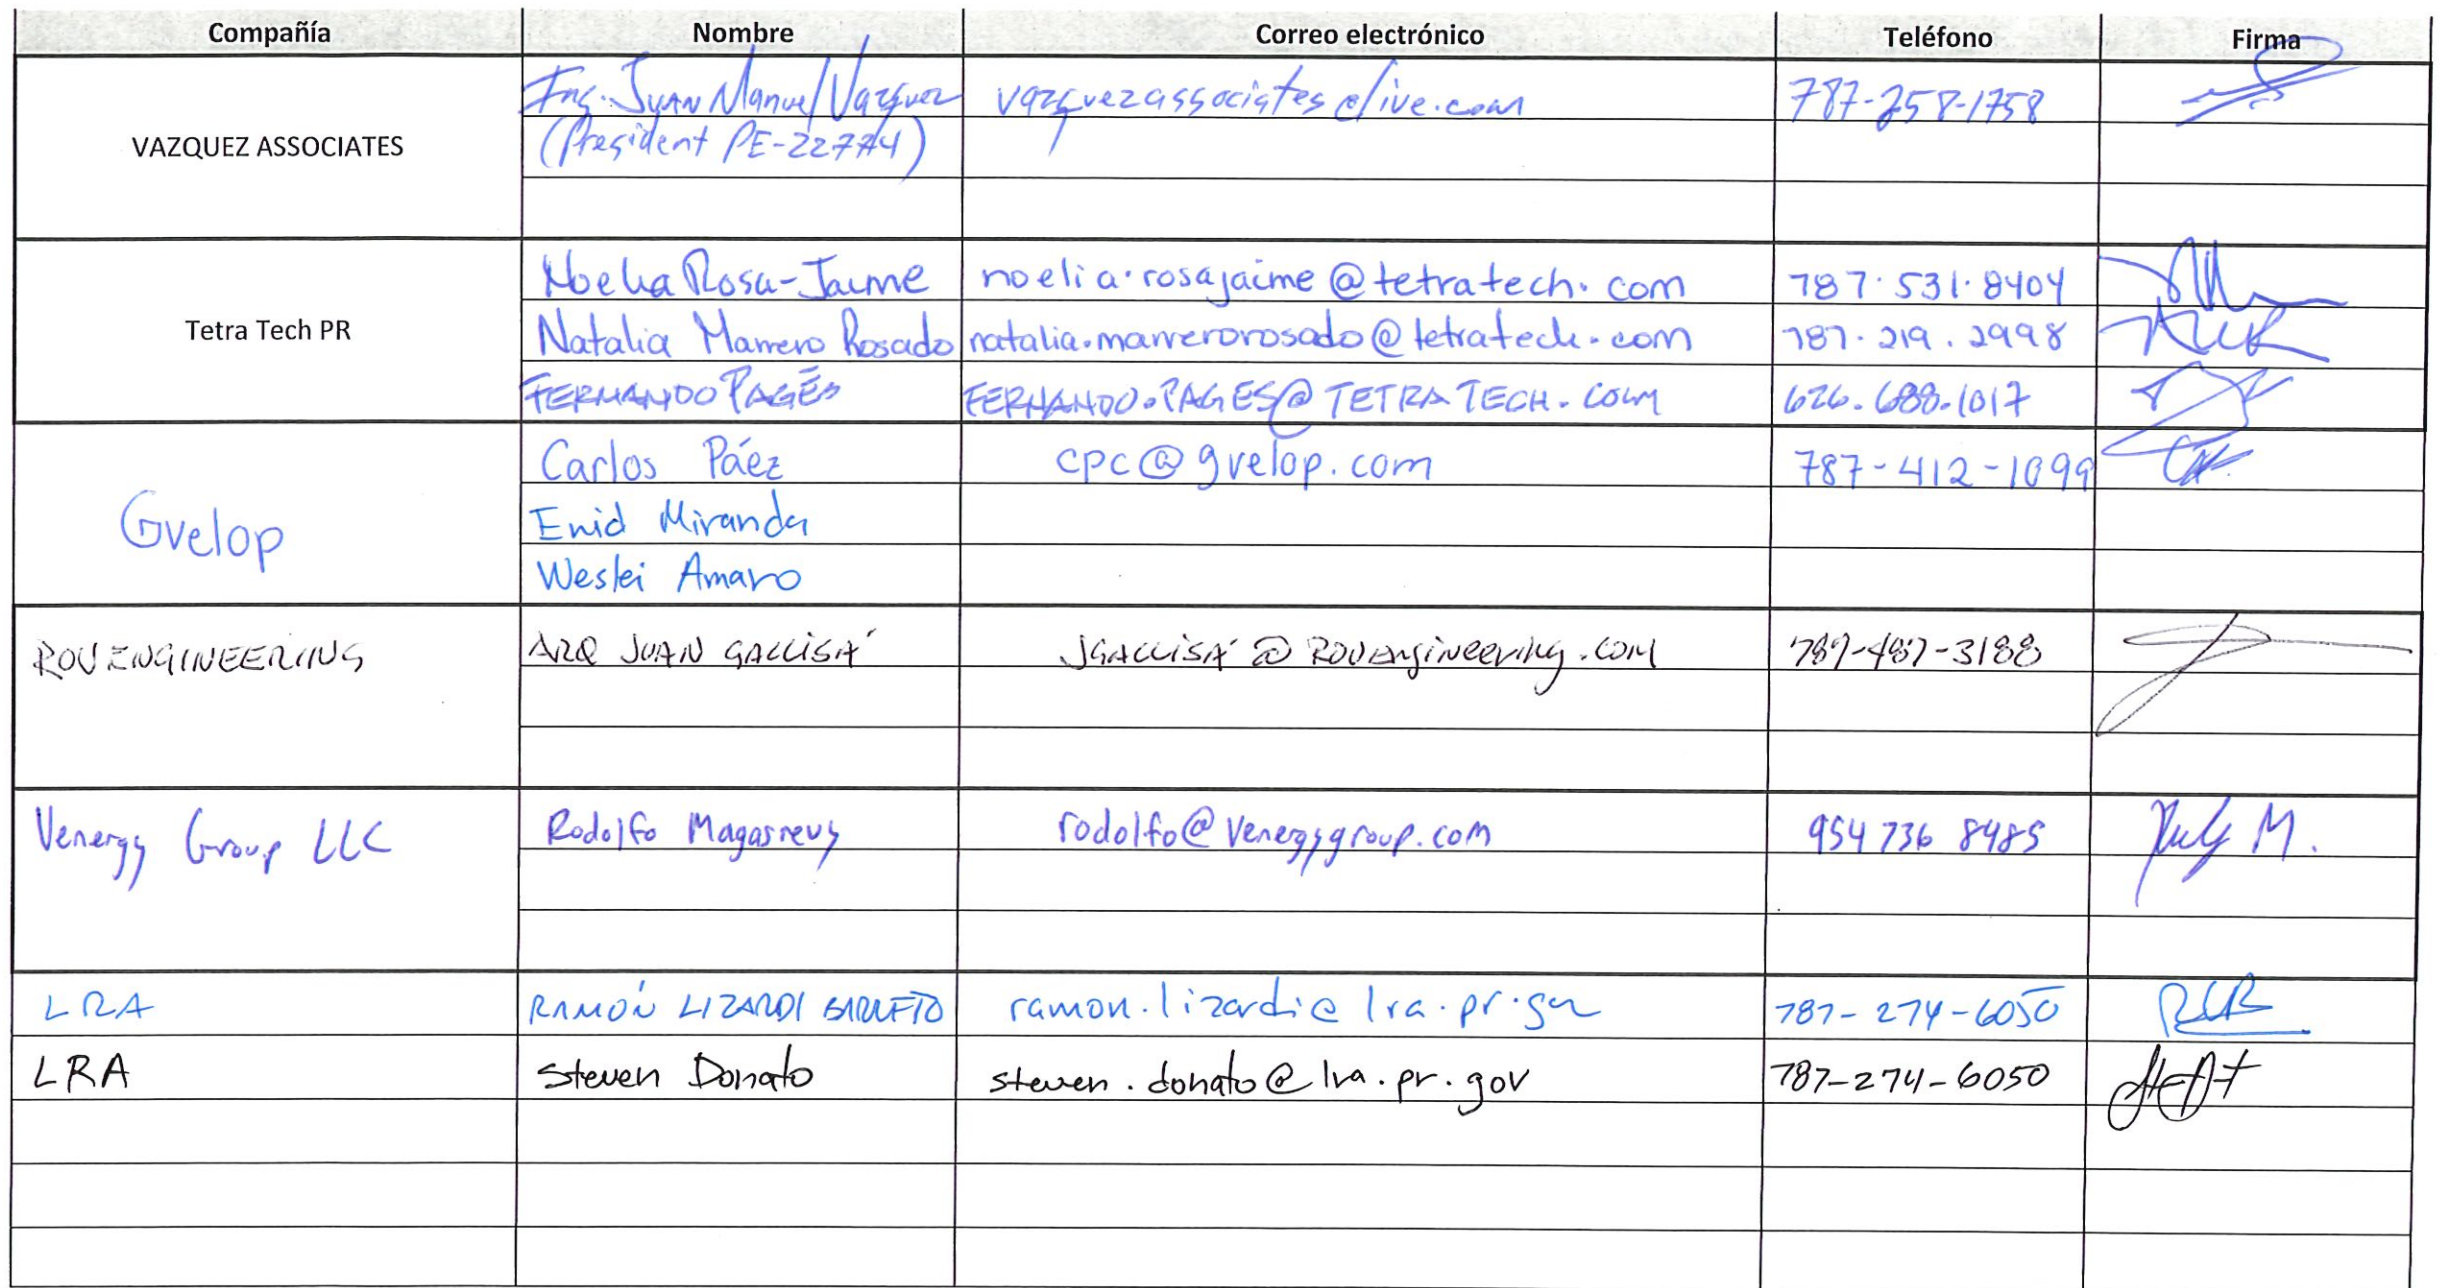 Compañía Nombre Correo electrónico Teléfono Firma
VAZQUEZ ASSOCIATES Ing. Juan Manuel Vazquez vazquezassociates@live.com 787-258-1758
(President PE-22774)
Noelia Rosa-Jaime noelia.rosajaime@tetratech.com 787.531.8404
Tetra Tech PR Natalia Marrero Rosado natalia.marrerorosado@tetratech.com 787.219.2998
FERNANDO PAGÉS FERNANDO.PAGES@TETRATECH.COM 626.688.1017
Carlos Páez cpc@gvelop.com 787-412-1099
Gvelop Enid Miranda
Weslei Amaro
ROV ENGINEERING ARQ JUAN GALLISÁ JGALLISÁ@ROVENGINEERING.COM 787-487-3188
Venergy Group LLC Rodolfo rodolfo@venergygroup.com 954 736 8485 M.
LRA RAMÓN LIZARDI BARRETO ramon.lizardi@lra.pr.gov 787-274-6050 RLB
LRA Steven Donato steven.donato@lra.pr.gov 787-274-6050